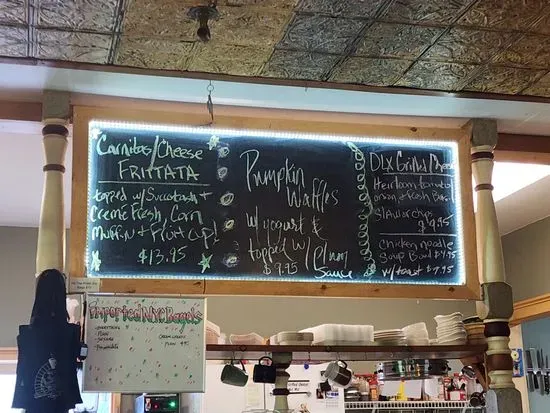 Carnitas/Cheese
FRITTATA
topped w/ Succotash +
Creme Fresh, Corn
Muffin + Fruit Cup!
$13.95
Pumpkin
Waffles
w/ yogurt &
topped w/ Plum
Sauce
$9.95
DLX Grilled Cheese
Heirloom tomato
onion & Fresh Basil
Slaw or chips
9.95
Chicken Noodle
Soup Bowl
w/ toast $7.95
Imported NYC Bagels
- EVERYTHING
- PLAIN
- SESAME
CREAM CHEESE
PLAIN